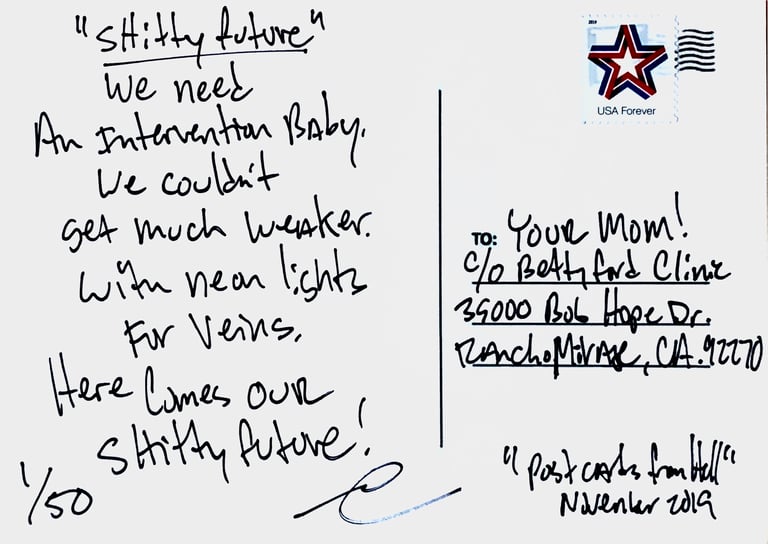 "Shitty future"
We need
An Intervention Baby.
We couldn't
get much weaker.
With neon lights
For Veins.
Here Comes our
Shitty future!
1/50
2019
USA Forever
TO: Your Mom!
c/o Betty Ford Clinic
39000 Bob Hope Dr.
Rancho Mirage, CA. 92270
"Postcards from Hell"
November 2019